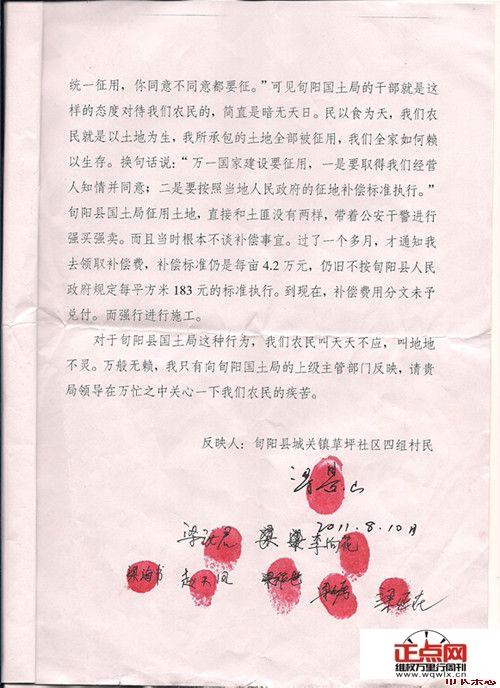 统一征用，你同意不同意都要征。”可见旬阳国土局的干部就是这
样的态度对待我们农民的，简直是暗无天日。民以食为天，我们农
民就是以土地为生，我所承包的土地全部被征用，我们全家如何赖
以生存。换句话说：“万一国家建设要征用，一是要取得我们经营
人知情并同意；二是要按照当地人民政府的征地补偿标准执行。”
旬阳县国土局征用土地，直接和土匪没有两样，带着公安干警进行
强买强卖。而且当时根本不谈补偿事宜。过了一个多月，才通知我
去领取补偿费，补偿标准仍是每亩 4.2 万元，仍旧不按旬阳县人民
政府规定每平方米 183 元的标准执行。到现在，补偿费用分文未予
兑付。而强行进行施工。
对于旬阳县国土局这种行为，我们农民叫天天不应，叫地地
不灵。万般无赖，我只有向旬阳国土局的上级主管部门反映，请贵
局领导在万忙之中关心一下我们农民的疾苦。
反映人：旬阳县城关镇草坪社区四组村民
2011.8.10日
正点网
维权万里行周刊
www.wqwlx.cn